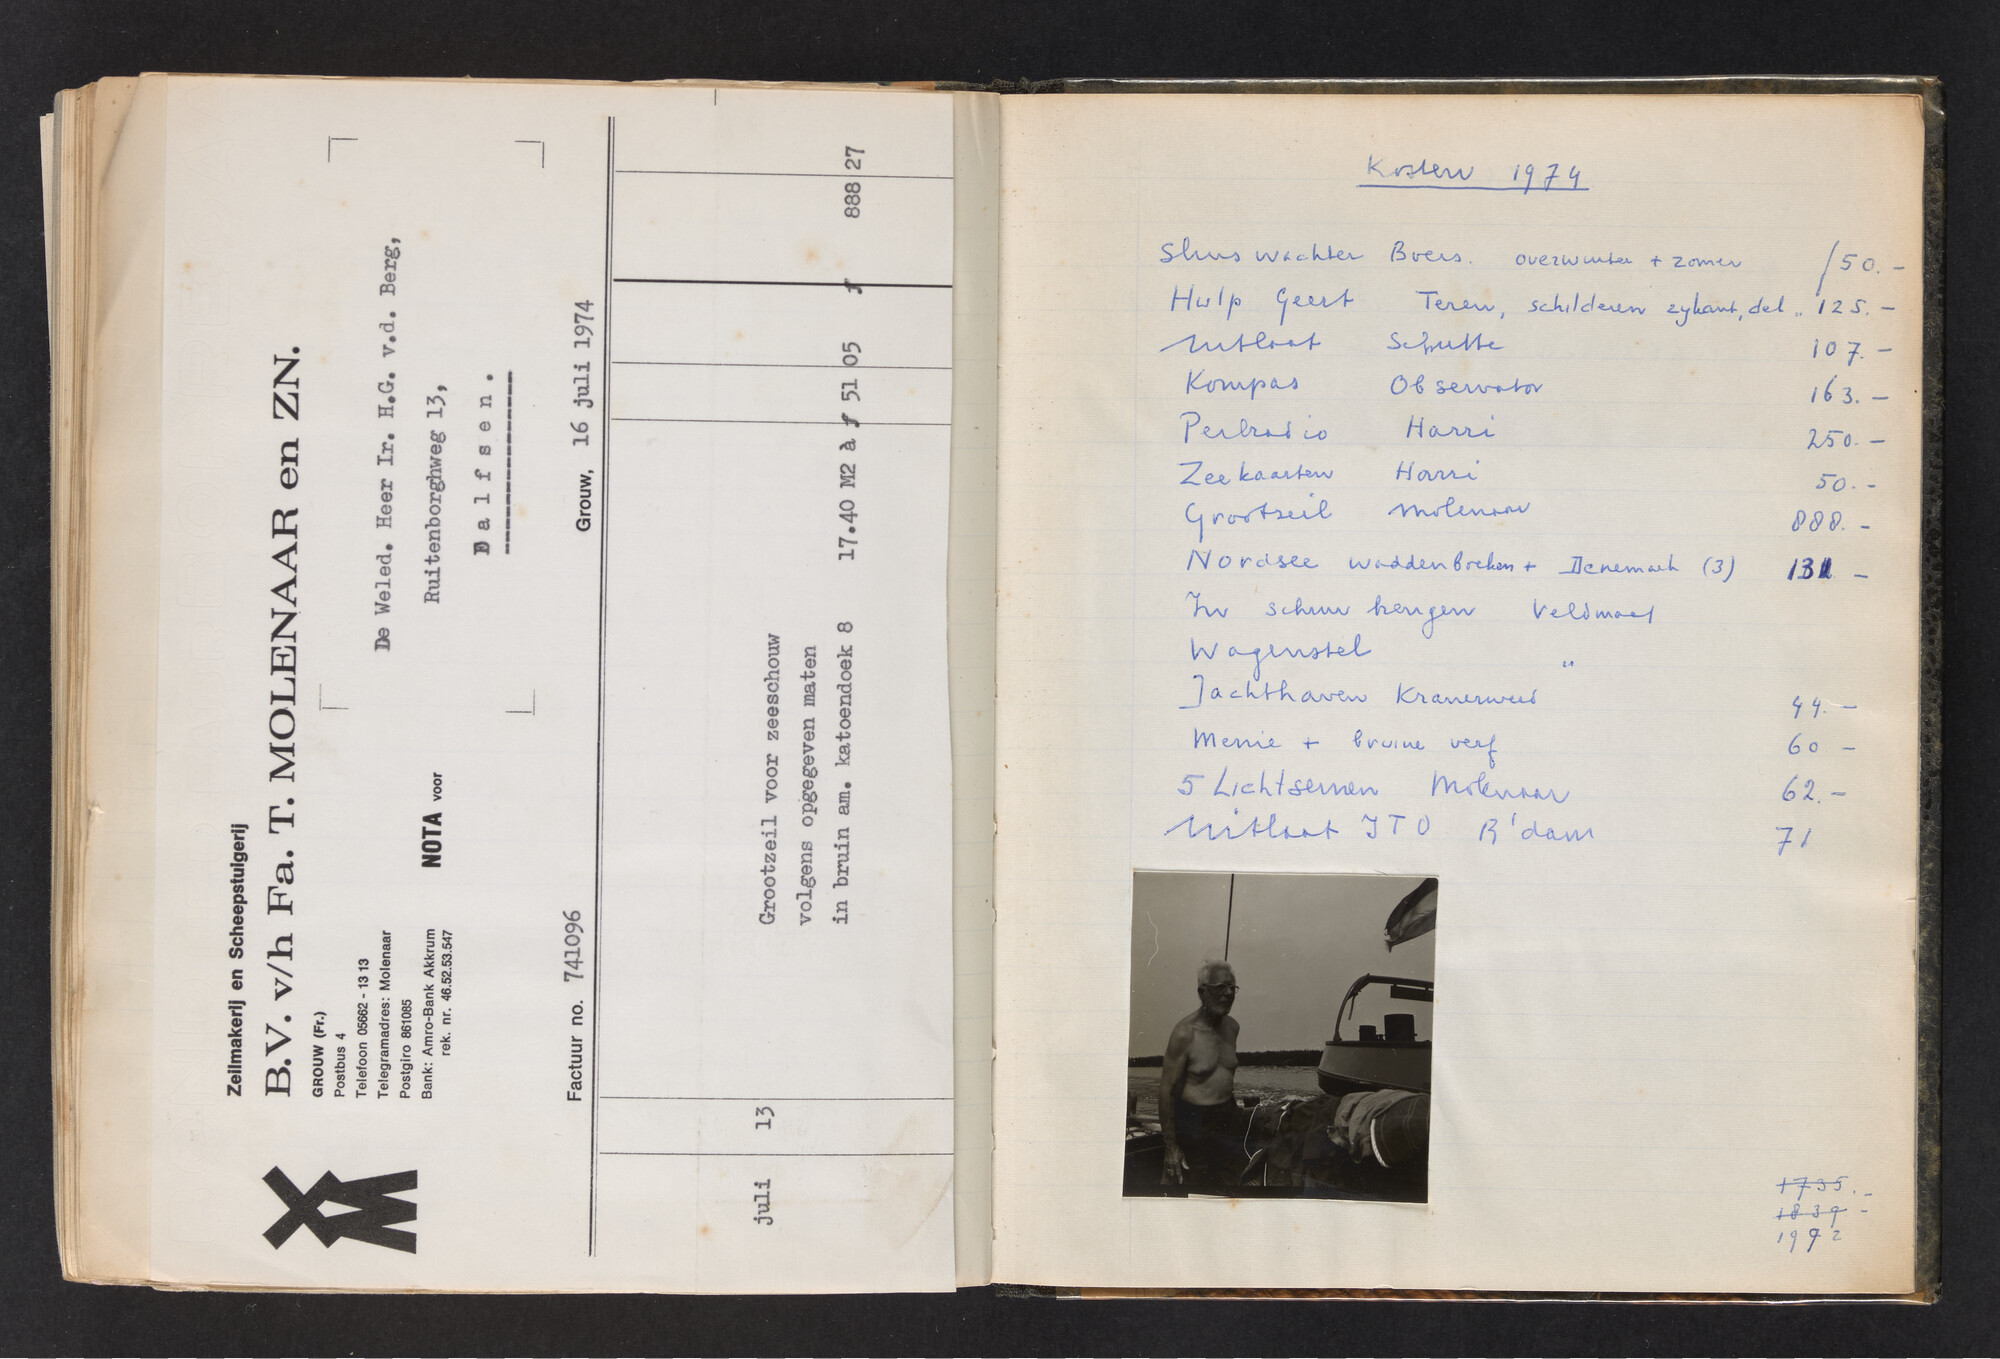 Zeilmakerij en Scheepstuigerij
B.V. v/h Fa. T. MOLENAAR en ZN.
GROUW (Fr.)
Postbus 4
Telefoon 05662 - 13 13
Telegramadres: Molenaar
Postgiro 861085
Bank: Amro-Bank Akkrum
rek. nr. 46.52.53.547
NOTA voor
De Weled. Heer Ir. H.G. v.d. Berg,
Ruitenborghweg 13,
D a l f s e n .
Factuur no. 741096
Grouw, 16 juli 1974
juli 13 Grootzeil voor zeeschouw
volgens opgegeven maten
in bruin am. katoendoek 8 17.40 M2 à f 51 05 f 888 27
Kosten 1974
Sluis wachter Boers. overwinter + zomer f 50.-
Hulp Geert Teren, schilderen zykant, del " 125.-
Uitlaat Schutte 107.-
Kompas Observator 163.-
Peilradio Harri 250.-
Zeekaarten Harri 50.-
Grootzeil Molenaar 888.-
Nordsee waddenboeken + Denemark (3) 131 -
In schuur hengen Veldmaet
Wagenstel "
Jachthaven Kranerweerd 44.-
Menie + bruine verf 60 -
5 Lichtseinen Molenaar 62.-
Uitlaat ITO R'dam 71
1735.-
1839 -
1992